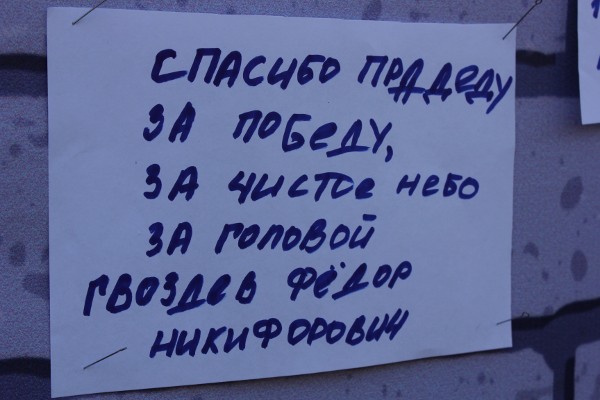 СПАСИБО ПРАДЕДУ
ЗА ПОБЕДУ,
ЗА ЧИСТОЕ НЕБО
ЗА ГОЛОВОЙ
ГВОЗДЕВ ФЁДОР
НИКИФОРОВИЧ